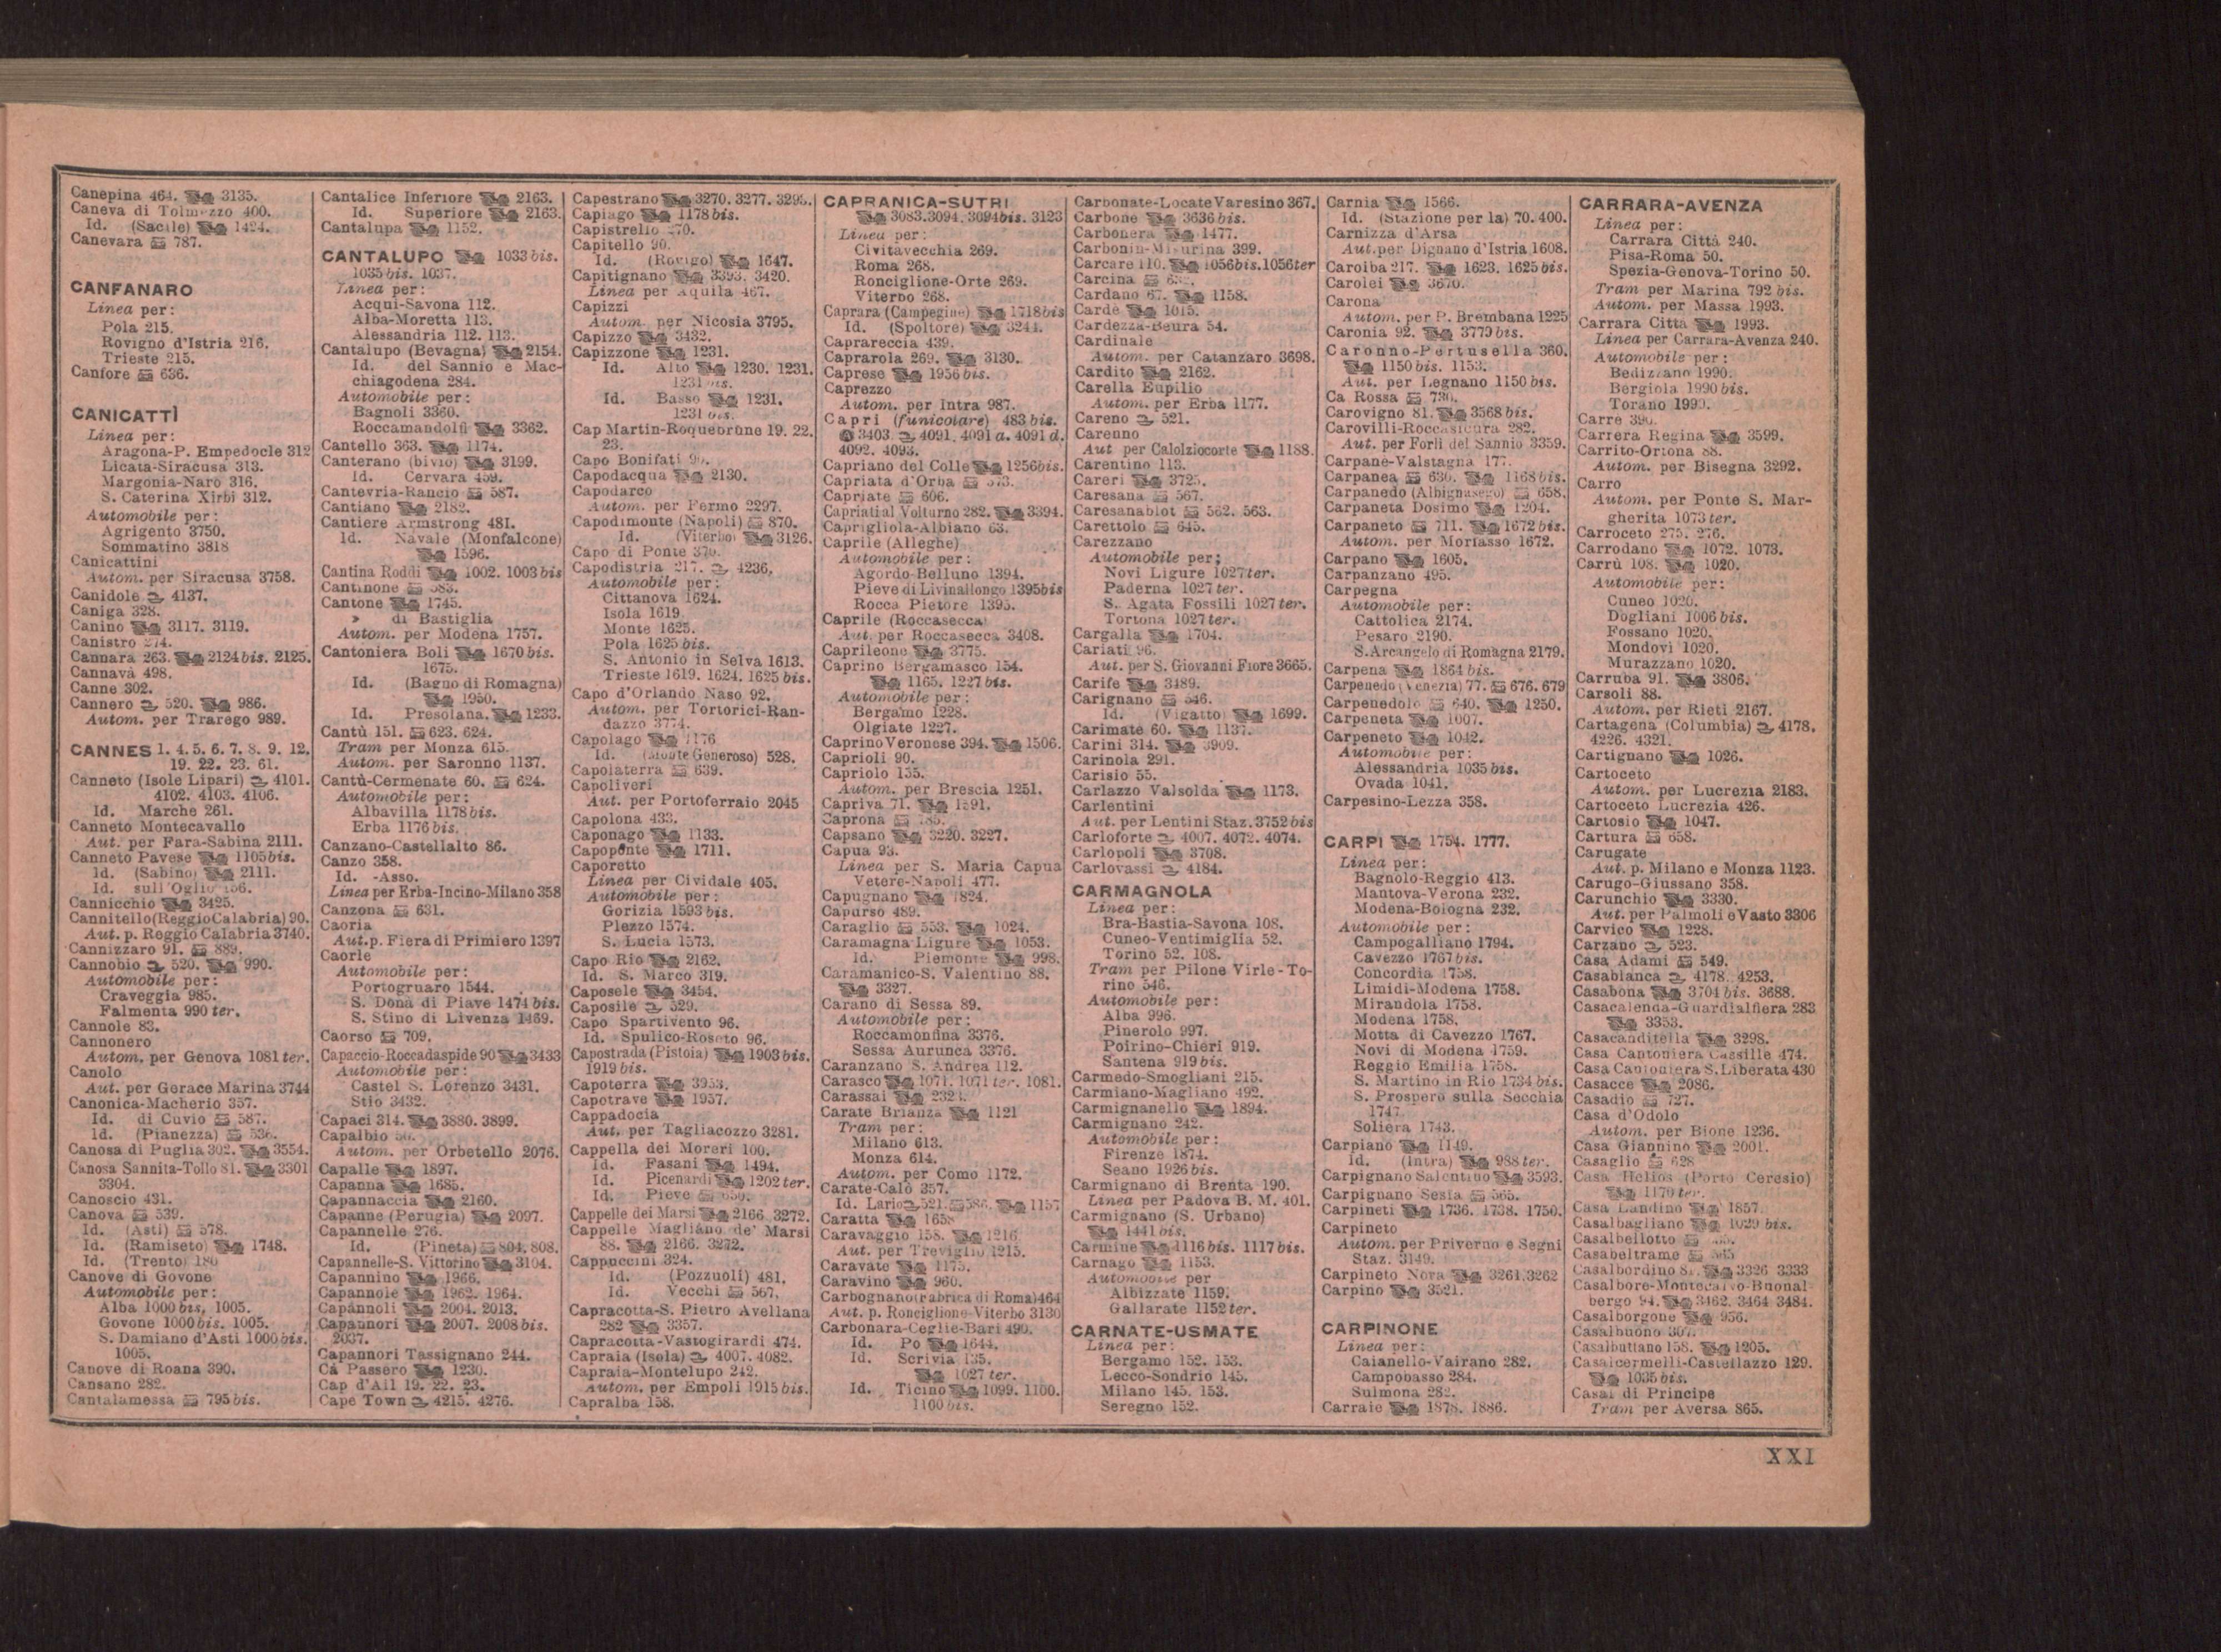 Canepina 464. 3135.
Caneva di Tolmezzo 400.
Id. (Sacile) 1424.
Canevara 787.
CANFANARO
Linea per:
Pola 215.
Rovigno d'Istria 216.
Trieste 215.
Canfore 636.
CANICATTÌ
Linea per:
Aragona-P. Empedocle 312
Licata-Siracusa 313.
Margonia-Naro 316.
S. Caterina Xirbi 312.
Automobile per:
Agrigento 3750.
Sommatino 3818
Canicattini
Autom. per Siracusa 3758.
Canidole 4137.
Caniga 328.
Canino 3117. 3119.
Canistro 274.
Cannara 263. 2124bis. 2125.
Cannava 498.
Canne 302.
Cannero 520. 986.
Autom. per Trarego 989.
CANNES 1. 4. 5. 6. 7. 8. 9. 12.
19. 22. 23. 61.
Canneto (Isole Lipari) 4101.
4102. 4103. 4106.
Id. Marche 261.
Canneto Montecavallo
Aut. per Fara-Sabina 2111.
Canneto Pavese 1105bis.
Id. (Sabino) 2111.
Id. sull'Oglio 156.
Cannicchio 3425.
Cannitello (Reggio Calabria) 90.
Aut. p. Reggio Calabria 3740.
Cannizzaro 91. 889.
Cannobio 520. 990.
Automobile per:
Craveggia 985.
Falmenta 990 ter.
Cannole 83.
Cannonero
Autom. per Genova 1081 ter.
Canolo
Aut. per Gerace Marina 3744
Canonica-Macherio 357.
Id. di Cuvio 587.
Id. (Pianezza) 536.
Canosa di Puglia 302. 3554.
Canosa Sannita-Tollo 81. 3301
3304.
Canoscio 431.
Canova 539.
Id. (Asti) 578.
Id. (Ramiseto) 1748.
Id. (Trento) 180
Canove di Govone
Automobile per:
Alba 1000 bis, 1005.
Govone 1000 bis. 1005.
S. Damiano d'Asti 1000 bis.
1005.
Canove di Roana 390.
Cansano 282.
Cantalamessa 795 bis.
Cantalice Inferiore 2163.
Id. Superiore 2163.
Cantalupa 1152.
CANTALUPO 1033 bis.
1035 bis. 1037.
Linea per:
Acqui-Savona 112.
Alba-Moretta 113.
Alessandria 112. 113.
Cantalupo (Bevagna) 2154.
Id. del Sannio e Mac-
chiagodena 284.
Automobile per:
Bagnoli 3360.
Roccamandolfi 3362.
Cantello 363. 1174.
Canterano (bivio) 3199.
Id. Cervara 459.
Cantevria-Rancio 587.
Cantiano 2182.
Cantiere Armstrong 481.
Id. Navale (Monfalcone)
1596.
Cantina Roddi 1002. 1003 bis
Cantinone 583.
Cantone 1745.
» di Bastiglia
Autom. per Modena 1757.
Cantoniera Boli 1670 bis.
1675.
Id. (Bagno di Romagna)
1950.
Id. Presolana. 1233.
Cantù 151. 623. 624.
Tram per Monza 615.
Autom. per Saronno 1137.
Cantù-Cermenate 60. 624.
Automobile per:
Albavilla 1178 bis.
Erba 1176 bis.
Canzano-Castellalto 86.
Canzo 358.
Id. -Asso.
Linea per Erba-Incino-Milano 358
Canzona 631.
Caoria
Aut.p. Fiera di Primiero 1397
Caorle
Automobile per:
Portogruaro 1544.
S. Donà di Piave 1474 bis.
S. Stino di Livenza 1469.
Caorso 709.
Capaccio-Roccadaspide 90 3433
Automobile per:
Castel S. Lorenzo 3431.
Stio 3432.
Capaci 314. 3880. 3899.
Capalbio 50.
Autom. per Orbetello 2076.
Capalle 1897.
Capanna 1685.
Capannaccia 2160.
Capanne (Perugia) 2097.
Capannelle 276.
Id. (Pineta) 804. 808.
Capannelle-S. Vittorino 3104.
Capannino 1966.
Capannole 1962. 1964.
Capannoli 2004. 2013.
Capannori 2007. 2008 bis.
2037.
Capannori Tassignano 244.
Cà Passero 1230.
Cap d'Ail 19. 22. 23.
Cape Town 4215. 4276.
Capestrano 3270. 3277. 3295.
Capiago 1178 bis.
Capistrello 270.
Capitello 90.
Id. (Rovigo) 1647.
Capitignano 3393. 3420.
Linea per Aquila 467.
Capizzi
Autom. per Nicosia 3795.
Capizzo 3432.
Capizzone 1231.
Id. Alto 1230. 1231.
1231 bis.
Id. Basso 1231.
1231 bis.
Cap Martin-Roquebrune 19. 22.
23.
Capo Bonifati 90.
Capodacqua 2130.
Capodarco
Autom. per Fermo 2297.
Capodimonte (Napoli) 870.
Id. (Viterbo) 3126.
Capo di Ponte 370.
Capodistria 217. 4236.
Automobile per:
Cittanova 1624.
Isola 1619
Monte 1625.
Pola 1625 bis.
S. Antonio in Selva 1613.
Trieste 1619. 1624. 1625 bis.
Capo d'Orlando Naso 92.
Autom. per Tortorici-Ran-
dazzo 3774.
Capolago 1176
Id. (Monte Generoso) 528.
Capolaterra 639.
Capoliveri
Aut. per Portoferraio 2045
Capolona 433.
Caponago 1133.
Capoponte 1711.
Caporetto
Linea per Cividale 405.
Automobile per:
Gorizia 1593 bis.
Plezzo 1574.
S. Lucia 1573.
Capo Rio 2162.
Id. S. Marco 319.
Caposele 3454.
Caposile 529.
Capo Spartivento 96.
Id. Spulico-Roseto 96.
Capostrada (Pistoia) 1903 bis.
1919 bis.
Capoterra 3953.
Capotrave 1957.
Cappadocia
Aut. per Tagliacozzo 3281.
Cappella dei Moreri 100.
Id. Fasani 1494.
Id. Picenardi 1202 ter.
Id. Pieve 650.
Cappelle dei Marsi 2166. 3272.
Cappelle Magliano de' Marsi
88. 2166. 3272.
Cappuccini 324.
Id. (Pozzuoli) 481.
Id. Vecchi 567.
Capracotta-S. Pietro Avellana
282 3357.
Capracotta-Vastogirardi 474.
Capraia (Isola) 4007. 4082.
Capraia-Montelupo 242.
Autom. per Empoli 1915 bis.
Capralba 158.
CAPRANICA-SUTRI
3083. 3094. 3094bis. 3123
Linea per:
Civitavecchia 269.
Roma 268.
Ronciglione-Orte 269.
Viterbo 268.
Caprara (Campegine) 1718 bis
Id. (Spoltore) 3244.
Caprareccia 439.
Caprarola 269. 3130.
Caprese 1956 bis.
Caprezzo
Autom. per Intra 987.
Capri (funicolare) 483 bis.
3403. 4091. 4091 a. 4091 d.
4092. 4093.
Capriano del Colle 1256bis.
Capriata d'Orba 573.
Capriate 606.
Capriati al Volturno 282. 3394.
Caprigliola-Albiano 63.
Caprile (Alleghe)
Automobile per:
Agordo-Belluno 1394.
Pieve di Livinallongo 1395bis
Rocca Pietore 1395.
Caprile (Roccasecca)
Aut. per Roccasecca 3408.
Caprileone 3775.
Caprino Bergamasco 154.
1165. 1227 bis.
Automobile per:
Bergamo 1228.
Olgiate 1227.
Caprino Veronese 394. 1506.
Caprioli 90.
Capriolo 135.
Autom. per Brescia 1251.
Capriva 71. 1591.
Caprona 785.
Capsano 3220. 3227.
Capua 93.
Linea per S. Maria Capua
Vetere-Napoli 477.
Capugnano 1824.
Capurso 489.
Caraglio 553. 1024.
Caramagna Ligure 1053.
Id. Piemonte 998.
Caramanico-S. Valentino 88.
3327.
Carano di Sessa 89.
Automobile per:
Roccamonfina 3376.
Sessa Aurunca 3376.
Caranzano S. Andrea 112.
Carasco 1071. 1071 ter. 1081.
Carassai 2323.
Carate Brianza 1121
Tram per:
Milano 613.
Monza 614.
Autom. per Como 1172.
Carate-Calò 357.
Id. Lario 521. 586. 1157
Caratta 1658
Caravaggio 158. 1216
Aut. per Treviglio 1215.
Caravate 1175.
Caravino 960.
Carbognano (Fabrica di Roma) 464
Aut. p. Ronciglione-Viterbo 3130
Carbonara-Ceglie-Bari 490.
Id. Po 1644.
Id. Scrivia 135.
1027 ter.
Id. Ticino 1099. 1100.
1100 bis.
Carbonate-Locate Varesino 367.
Carbone 3636 bis.
Carbonera 1477.
Carbonin-Misurina 399.
Carcare 110. 1056bis. 1056ter
Carcina
Cardano 67. 1158.
Cardè 1015.
Cardezza-Beura 54.
Cardinale
Autom. per Catanzaro 3698.
Cardito 2162.
Carella Eupilio
Autom. per Erba 1177.
Careno 521.
Carenno
Aut per Calolziocorte 1188.
Carentino 113.
Careri 3725.
Caresana 567.
Caresanablot 562. 563.
Carettolo 645.
Carezzano
Automobile per:
Novi Ligure 1027ter.
Paderna 1027 ter.
S. Agata Fossili 1027 ter.
Tortona 1027 ter.
Cargalla 1704.
Cariati 96.
Aut. per S. Giovanni Fiore 3665.
Carife 3489.
Carignano 546.
Id. (Vigatto) 1699.
Carimate 60. 1137.
Carini 314. 3909.
Carinola 291.
Carisio 55.
Carlazzo Valsolda 1173.
Carlentini
Aut. per Lentini Staz. 3752 bis
Carloforte 4007. 4072. 4074.
Carlopoli 3708.
Carlovassi 4184.
CARMAGNOLA
Linea per:
Bra-Bastia-Savona 108.
Cuneo-Ventimiglia 52.
Torino 52. 108.
Tram per Pilone Virle-To-
rino 546.
Automobile per:
Alba 996.
Pinerolo 997.
Poirino-Chieri 919.
Santena 919 bis.
Carmedo-Smogliani 215.
Carmiano-Magliano 492.
Carmignanello 1894.
Carmignano 242.
Automobile per:
Firenze 1874.
Seano 1926 bis.
Carmignano di Brenta 190.
Linea per Padova B. M. 401.
Carmignano (S. Urbano)
1441 bis.
Carmine 1116 bis. 1117 bis.
Carnago 1153.
Automobile per
Albizzate 1159.
Gallarate 1152 ter.
CARNATE-USMATE
Linea per:
Bergamo 152. 153.
Lecco-Sondrio 145.
Milano 145. 153.
Seregno 152.
Carnia 1566.
Id. (Stazione per la) 70. 400.
Carnizza d'Arsa
Aut.per Dignano d'Istria 1608.
Caroiba 217. 1623. 1625 bis.
Carolei 3670.
Carona
Autom. per P. Brembana 1225
Caronia 92. 3779 bis.
Caronno-Pertusella 360.
1150 bis. 1153.
Aut. per Legnano 1150 bis.
Ca Rossa 730.
Carovigno 81. 3568 bis.
Carovilli-Roccasicura 282.
Aut. per Forlì del Sannio 3359.
Carpanè-Valstagna 177.
Carpanea 630. 1168 bis.
Carpanedo (Albignasego) 658.
Carpaneta Dosimo 1204.
Carpaneto 711. 1672 bis.
Autom. per Morfasso 1672.
Carpano 1605.
Carpanzano 495.
Carpegna
Automobile per:
Cattolica 2174.
Pesaro 2190.
S. Arcangelo di Romagna 2179.
Carpena 1864 bis.
Carpenedo (Venezia) 77. 676. 679
Carpenedolo 640. 1250.
Carpeneta 1007.
Carpeneto 1042.
Automobile per:
Alessandria 1035 bis.
Ovada 1041.
Carpesino-Lezza 358.
CARPI 1754. 1777.
Linea per:
Bagnolo-Reggio 413.
Mantova-Verona 232.
Modena-Bologna 232.
Automobile per:
Campogalliano 1794.
Cavezzo 1767 bis.
Concordia 1758.
Limidi-Modena 1758.
Mirandola 1758.
Modena 1758.
Motta di Cavezzo 1767.
Novi di Modena 1759.
Reggio Emilia 1758.
S. Martino in Rio 1734 bis.
S. Prospero sulla Secchia
1747
Soliera 1743.
Carpiano 1149.
Id. (Intra) 988 ter.
Carpignano Salentino 3593.
Carpignano Sesia 565.
Carpineti 1736. 1738. 1750.
Carpineto
Autom. per Priverno e Segni
Staz. 3149.
Carpineto Nova 3261. 3262
Carpino 3521.
CARPINONE
Linea per:
Caianello-Vairano 282.
Campobasso 284.
Sulmona 282.
Carraie 1878. 1886.
CARRARA-AVENZA
Linea per:
Carrara Città 240.
Pisa-Roma 50.
Spezia-Genova-Torino 50.
Tram per Marina 792 bis.
Autom. per Massa 1993.
Carrara Città 1993.
Linea per Carrara-Avenza 240.
Automobile per:
Bedizzano 1990.
Bergiola 1990 bis.
Torano 1990.
Carrè 390.
Carrera Regina 3599.
Carrito-Ortona 88.
Autom. per Bisegna 3292.
Carro
Autom. per Ponte S. Mar-
gherita 1073 ter.
Carroceto 275. 276.
Carrodano 1072. 1073.
Carrù 108. 1020.
Automobile per:
Cuneo 1020.
Dogliani 1006 bis.
Fossano 1020.
Mondovì 1020.
Murazzano 1020.
Carruba 91. 3806.
Carsoli 88.
Autom. per Rieti 2167.
Cartagena (Columbia) 4178.
4226. 4321.
Cartignano 1026.
Cartoceto
Autom. per Lucrezia 2183.
Cartoceto Lucrezia 426.
Cartosio 1047.
Cartura 658.
Carugate
Aut. p. Milano e Monza 1123.
Carugo-Giussano 358.
Carunchio 3330.
Aut. per Palmoli e Vasto 3306
Carvico 1228.
Carzano 523.
Casa Adami 549.
Casablanca 4178. 4253.
Casabona 3704 bis. 3688.
Casacalenda-Guardialfiera 283
3353.
Casacanditella 3298.
Casa Cantoniera Cassille 474.
Casa Cantoniera S. Liberata 430
Casacce 2086.
Casadio 727.
Casa d'Odolo
Autom. per Bione 1236.
Casa Giannino 2001.
Casaglio 628
Casa Helios (Porto Ceresio)
1170 ter.
Casa Landino 1857.
Casalbagliano 1029 bis.
Casalbellotto
Casabeltrame
Casalbordino 81. 3326 3333
Casalbore-Montecalvo-Buonal-
bergo 94. 3462. 3464 3484.
Casalborgone 956.
Casalbuono 307.
Casalbuttano 158. 1205.
Casalcermelli-Castellazzo 129.
1035 bis.
Casal di Principe
Tram per Aversa 865.
XXI